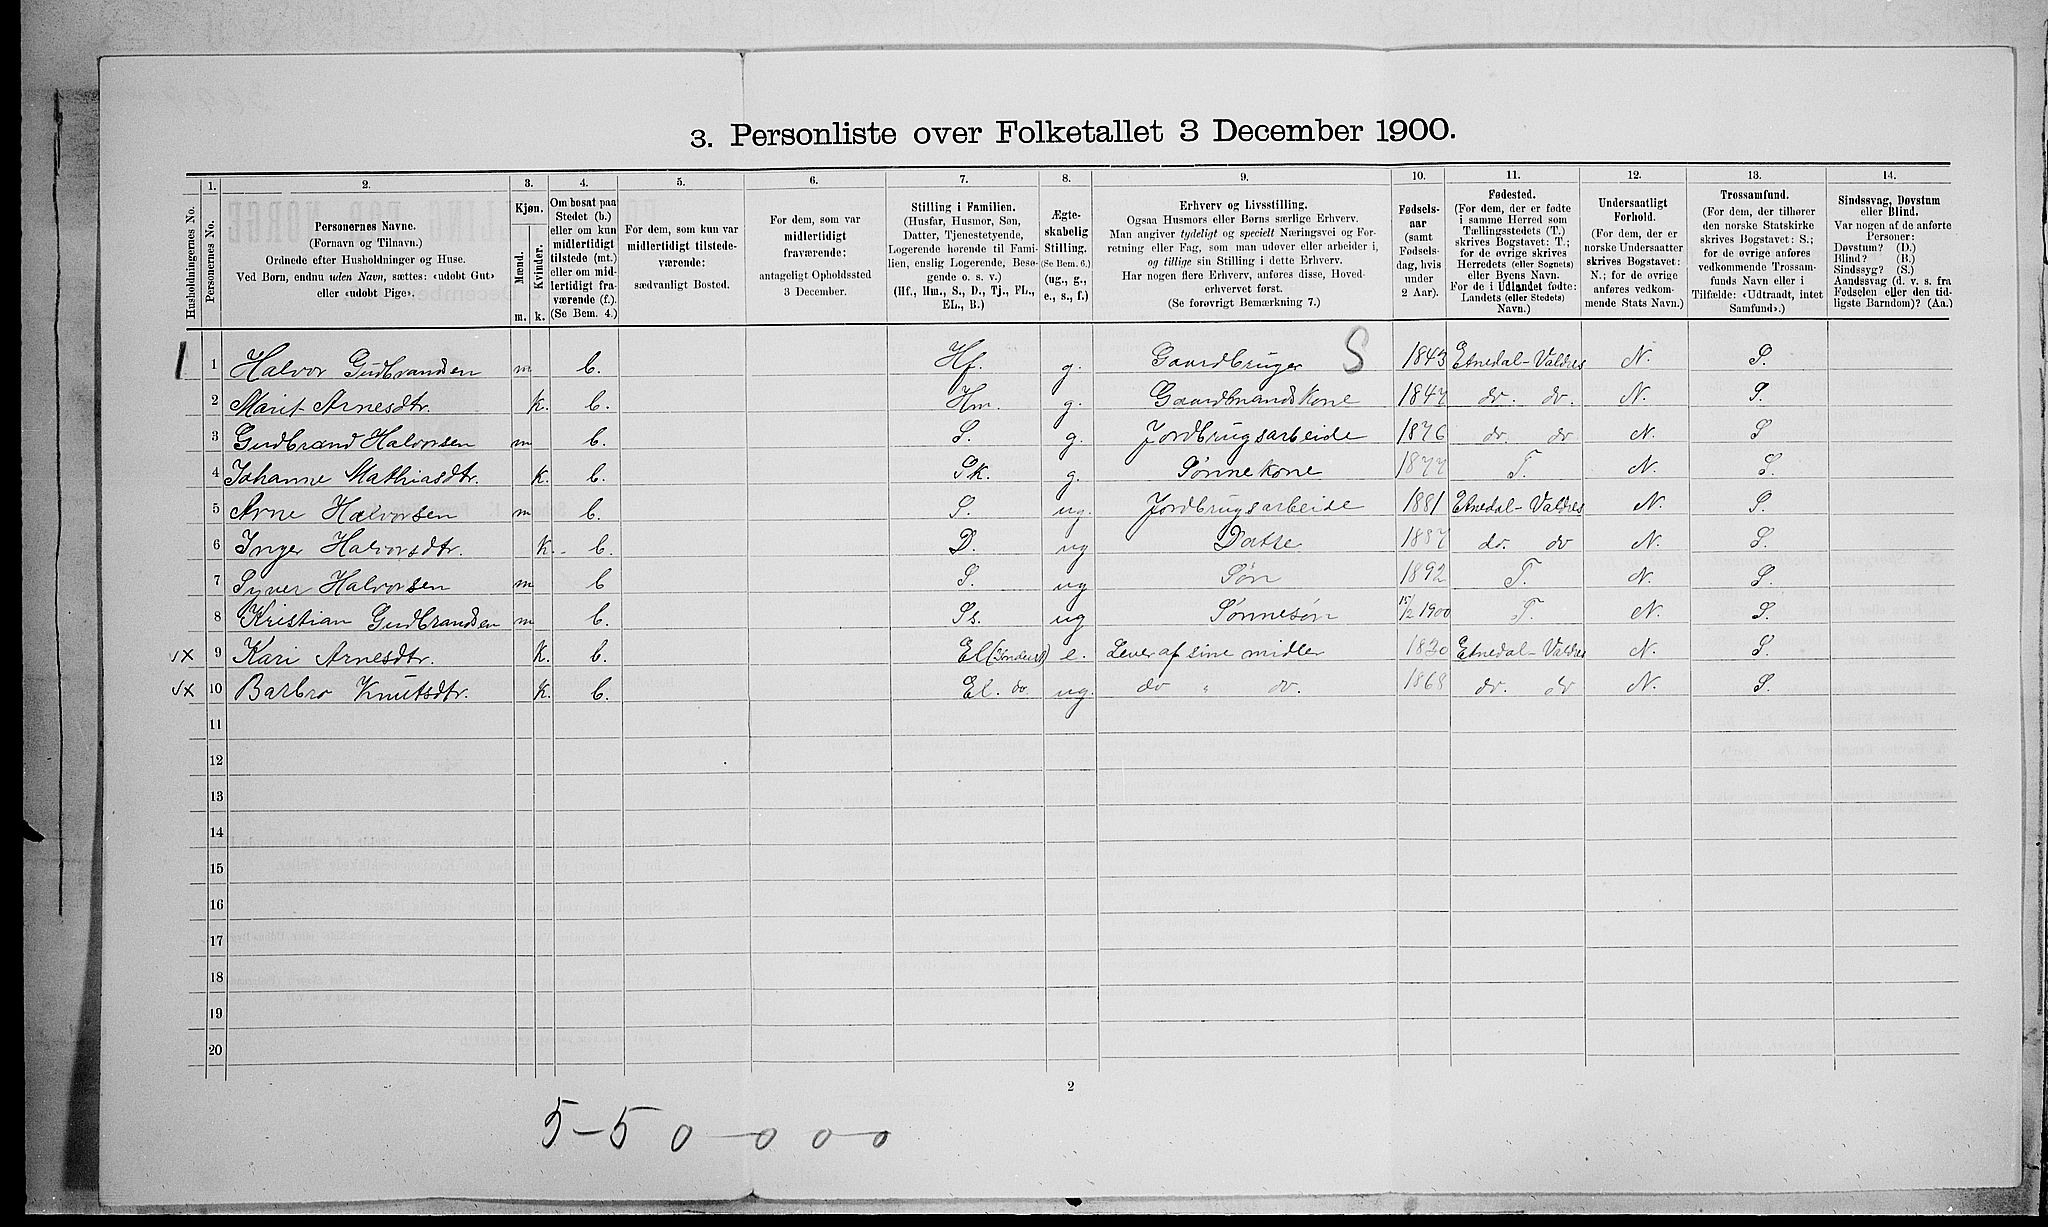 3. Personliste over Folketallet 3 December 1900.
1. 2. 3. 4. 5. 6. 7. 8. 9. 10. 11. 12. 13. 14.
Husholdningernes No.
Personernes No.
Personernes Navne.
(Fornavn og Tilnavn.)
Ordnede efter Husholdninger og Huse.
Ved Børn, endnu uden Navn, sættes: «udøbt Gut»
eller «udøbt Pige».
Kjøn.
Mænd.
Kvinder.
m. k.
Om bosat paa
Stedet (b.)
eller om kun
midlertidigt
tilstede (mt.)
eller om mid-
lertidigt fra-
værende (f.).
(Se Bem. 4.)
For dem, som kun var
midlertidigt tilstede-
værende:
sædvanligt Bosted.
For dem, som var
midlertidigt
fraværende:
antageligt Opholdssted
3 December.
Stilling i Familien.
(Husfar, Husmor, Søn,
Datter, Tjenestetyende,
Logerende hørende til Fami-
lien, enslig Logerende, Besø-
gende o. s. v.)
(Hf., Hm., S., D., Tj., FL.,
EL., B.)
Ægte-
skabelig
Stilling.
(Se Bem. 6.)
(ug., g.,
e., s., f.)
Erhverv og Livsstilling.
Ogsaa Husmors eller Børns særlige Erhverv.
Man angiver tydeligt og specielt Næringsvei og For-
retning eller Fag, som man udøver eller arbeider i,
og tillige sin Stilling i dette Erhverv.
Har nogen flere Erhverv, anføres disse, Hoved-
erhvervet først.
(Se forøvrigt Bemærkning 7.)
Fødsels-
aar
(samt
Fødsels-
dag, hvis
under
2 Aar).
Fødested.
(For dem, der er fødte
i samme Herred som
Tællingsstedets (T.)
skrives Bogstavet: T.;
for de øvrige skrives
Herredets (eller Sognets)
eller Byens Navn.
For de i Udlandet fødte:
Landets (eller Stedets)
Navn.)
Undersaatligt
Forhold.
(For dem, der er
norske Undersaatter
skrives Bogstavet:
N.; for de øvrige
anføres vedkom-
mende Stats Navn.)
Trossamfund.
(For dem, der tilhører
den norske Statskirke
skrives Bogstavet: S.;
for de øvrige anføres
vedkommende Trossam-
funds Navn eller i
Tilfælde: «Udtraadt, intet
Samfund».)
Sindssvag, Døvstum
eller Blind.
Var nogen af de anførte
Personer:
Døvstum? (D.)
Blind? (B.)
Sindssyg? (S.)
Aandssvag (d. v. s. fra
Fødselen eller den tid-
ligste Barndom)? (Aa.)
1 1 Halvor Gudbrandsen m b. Hf. g. Gaardbruger S 1843 Etnedal-Valdres N. S.
2 Marit Arnesdtr. k. b. Hm. g. Gaardmandskone 1847 do. do. N. S.
3 Gudbrand Halvorsen m b. S. g. Jordbrugsarbeide 1876 do. do N. S
4 Johanne Mathiasdtr. k. b. Sk. g. Sønnekone 1877 T. N. S.
5 Arne Halvorsen m b. S. ug. Jordbrugsarbeide 1881 Etnedal-Valdres N. S.
6 Inger Halvorsdtr. k. b. D. ug Datter 1887 do. do N. S.
7 Syver Halvorsen m b S. ug Søn 1892 T. N. S.
8 Kristian Gudbrandsen m b. Ss. ug Sønnesøn 15/2 1900 T. N. S.
vx 9 Kari Arnesdtr. k. b. El e. Lever af sine midler 1820 Etnedal-Valdres N. S.
vx 10 Barbro Knutsdtr. k. b. El. do ug. do " do. 1868 do. do N. S.
11
12
13
14
15
16
17
18
19
20
2
5-5 0-0 0-0